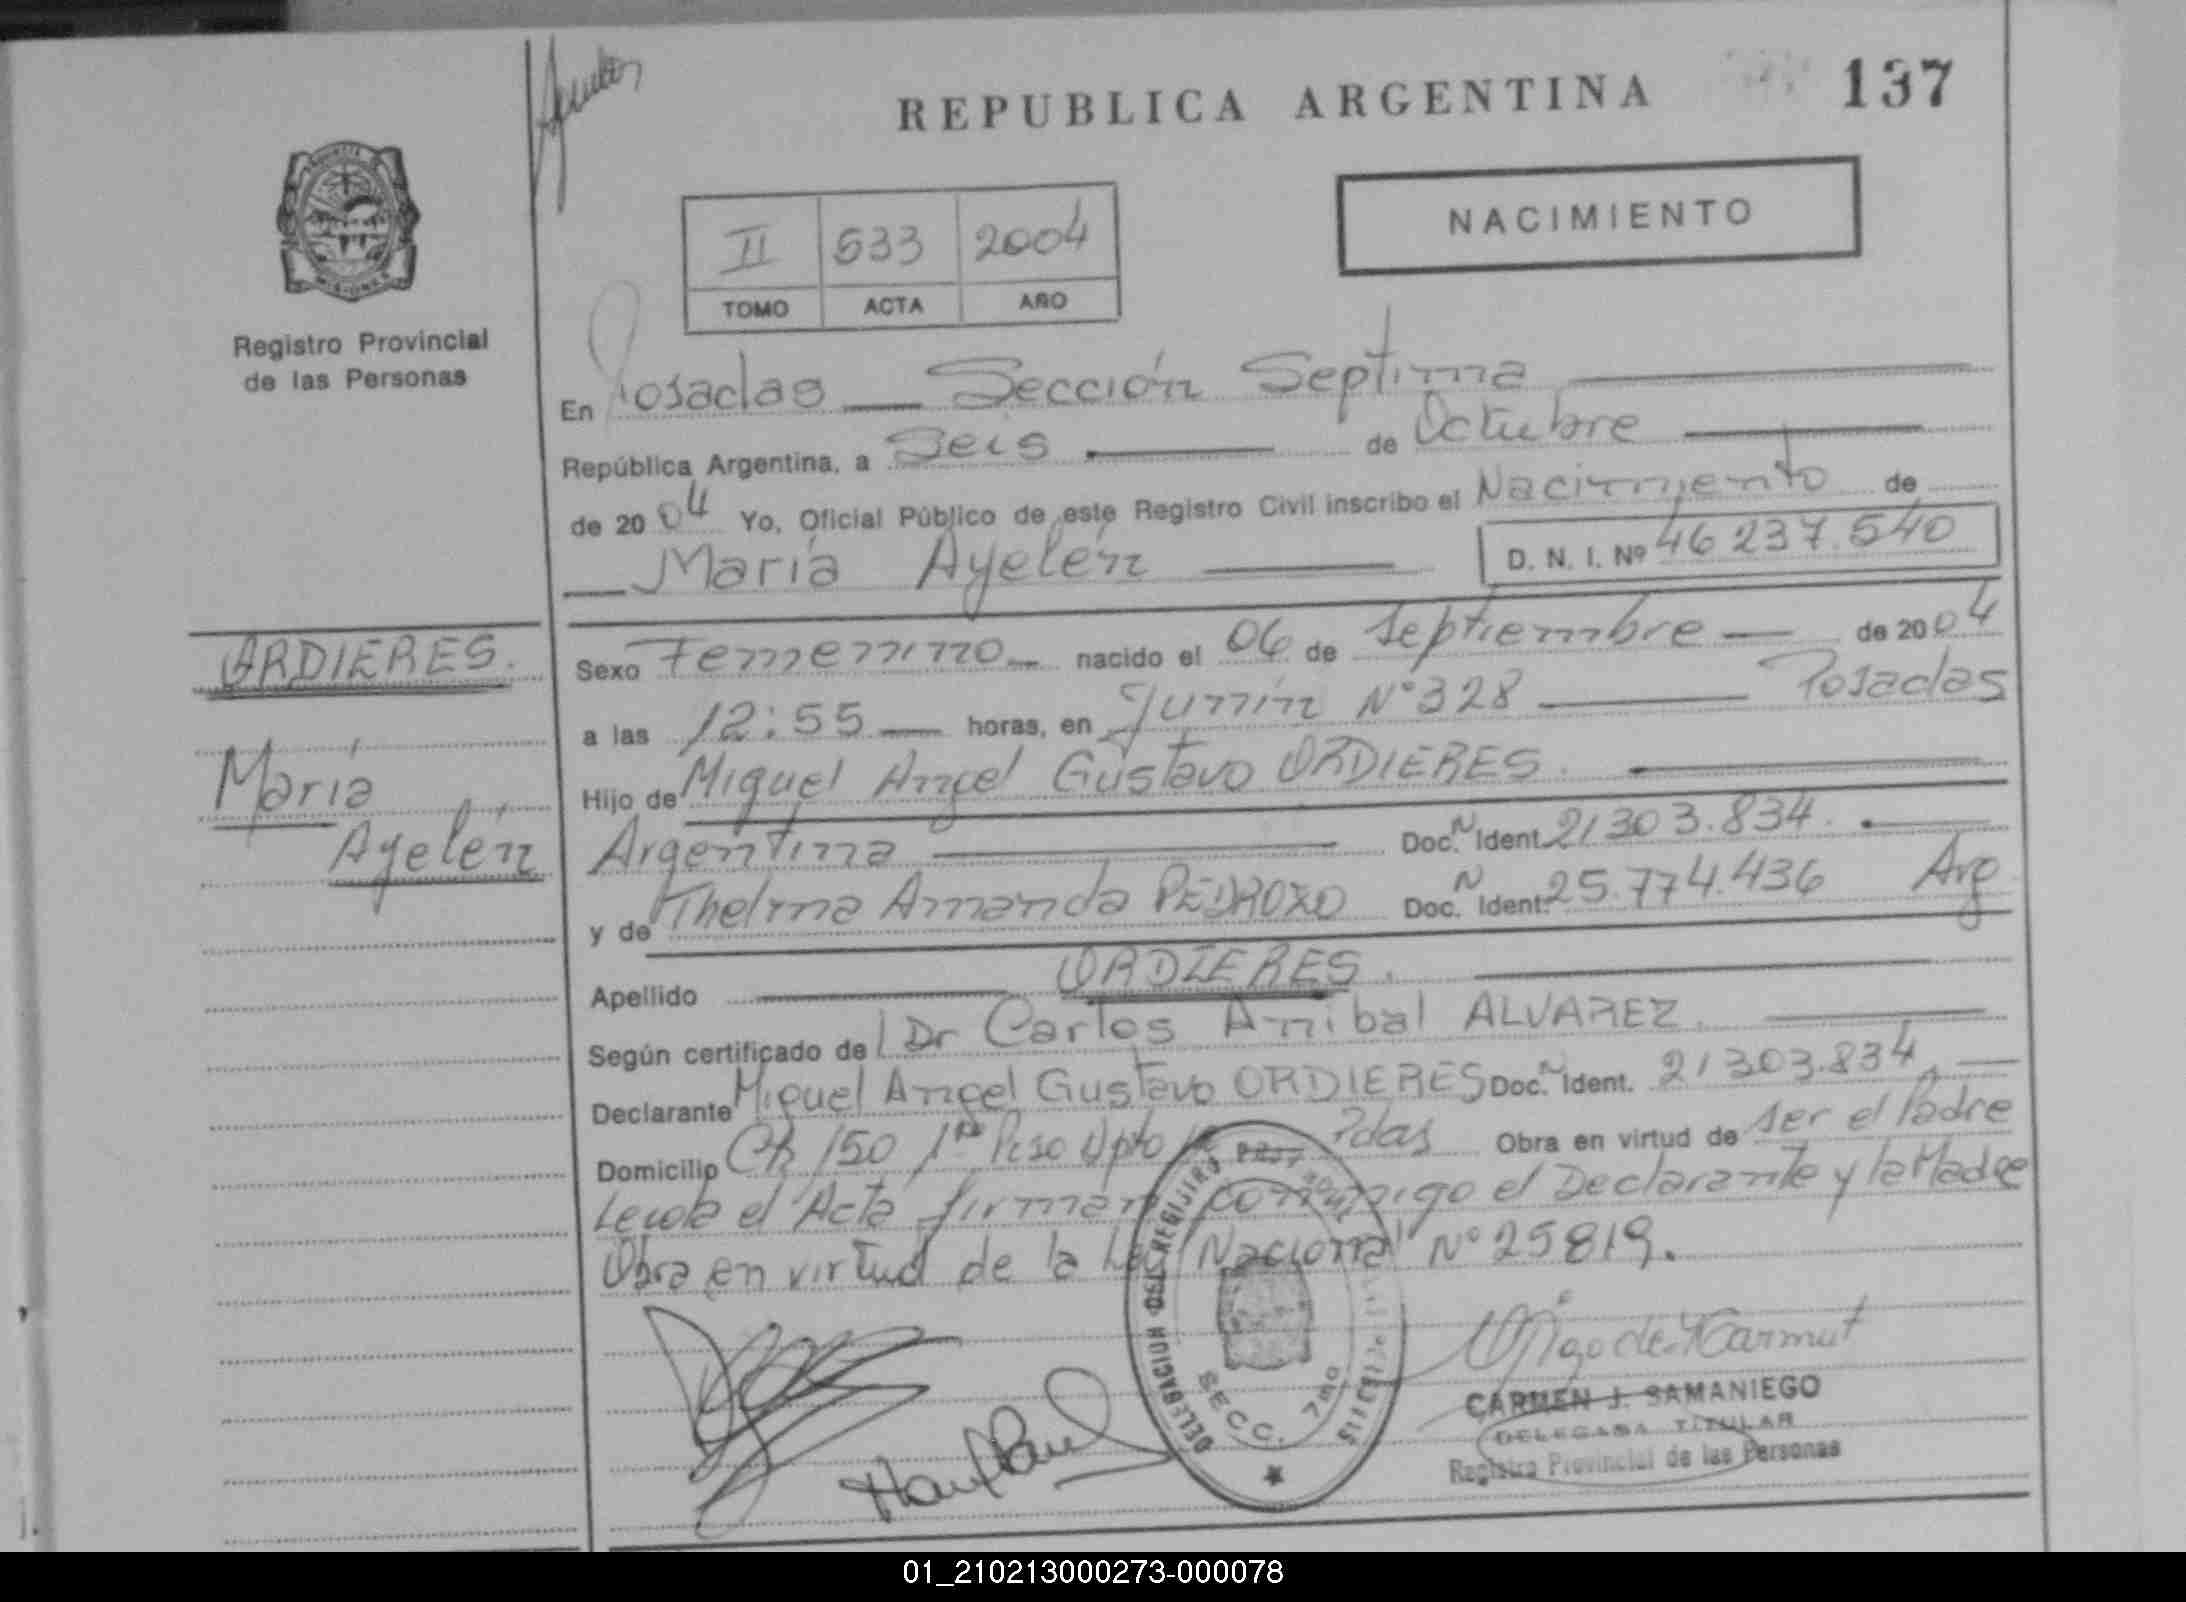 REPUBLICA ARGENTINA
137
NACIMIENTO
II 533 2004
TOMO ACTA AÑO
Registro Provincial
de las Personas
En Posadas — Sección Septima
República Argentina, a Seis de Octubre
de 2004 Yo, Oficial Público de este Registro Civil inscribo el Nacimiento de
María Ayelén
D. N. I. Nº 46 237.540
ORDIERES.
María
Ayelén
Sexo Femenino nacido el 06 de Septiembre de 2004
a las 12:55 horas, en Junín N° 328 Posadas
Hijo de Miguel Angel Gustavo ORDIERES.
Argentina Doc. N Ident. 21303.834.
y de Thelma Amanda PEDROZO Doc. N Ident. 25.774.436 Arg
Apellido ORDIERES.
Según certificado de Dr Carlos Anibal ALVAREZ.
Declarante Miguel Angel Gustavo ORDIERES Doc. N Ident. 21303.834.
Domicilio Ch 150 1ro Piso Dpto Pdas Obra en virtud de ser el Padre
Leida el Acta firman conmigo el Declarante y la Madre
Obra en virtud de la Ley Nacional N° 25819.
DELEGACION DEL REGISTRO
SECC. 7ma
CARMEN J. SAMANIEGO
DELEGADA TITULAR
Registro Provincial de las Personas
01_210213000273-000078